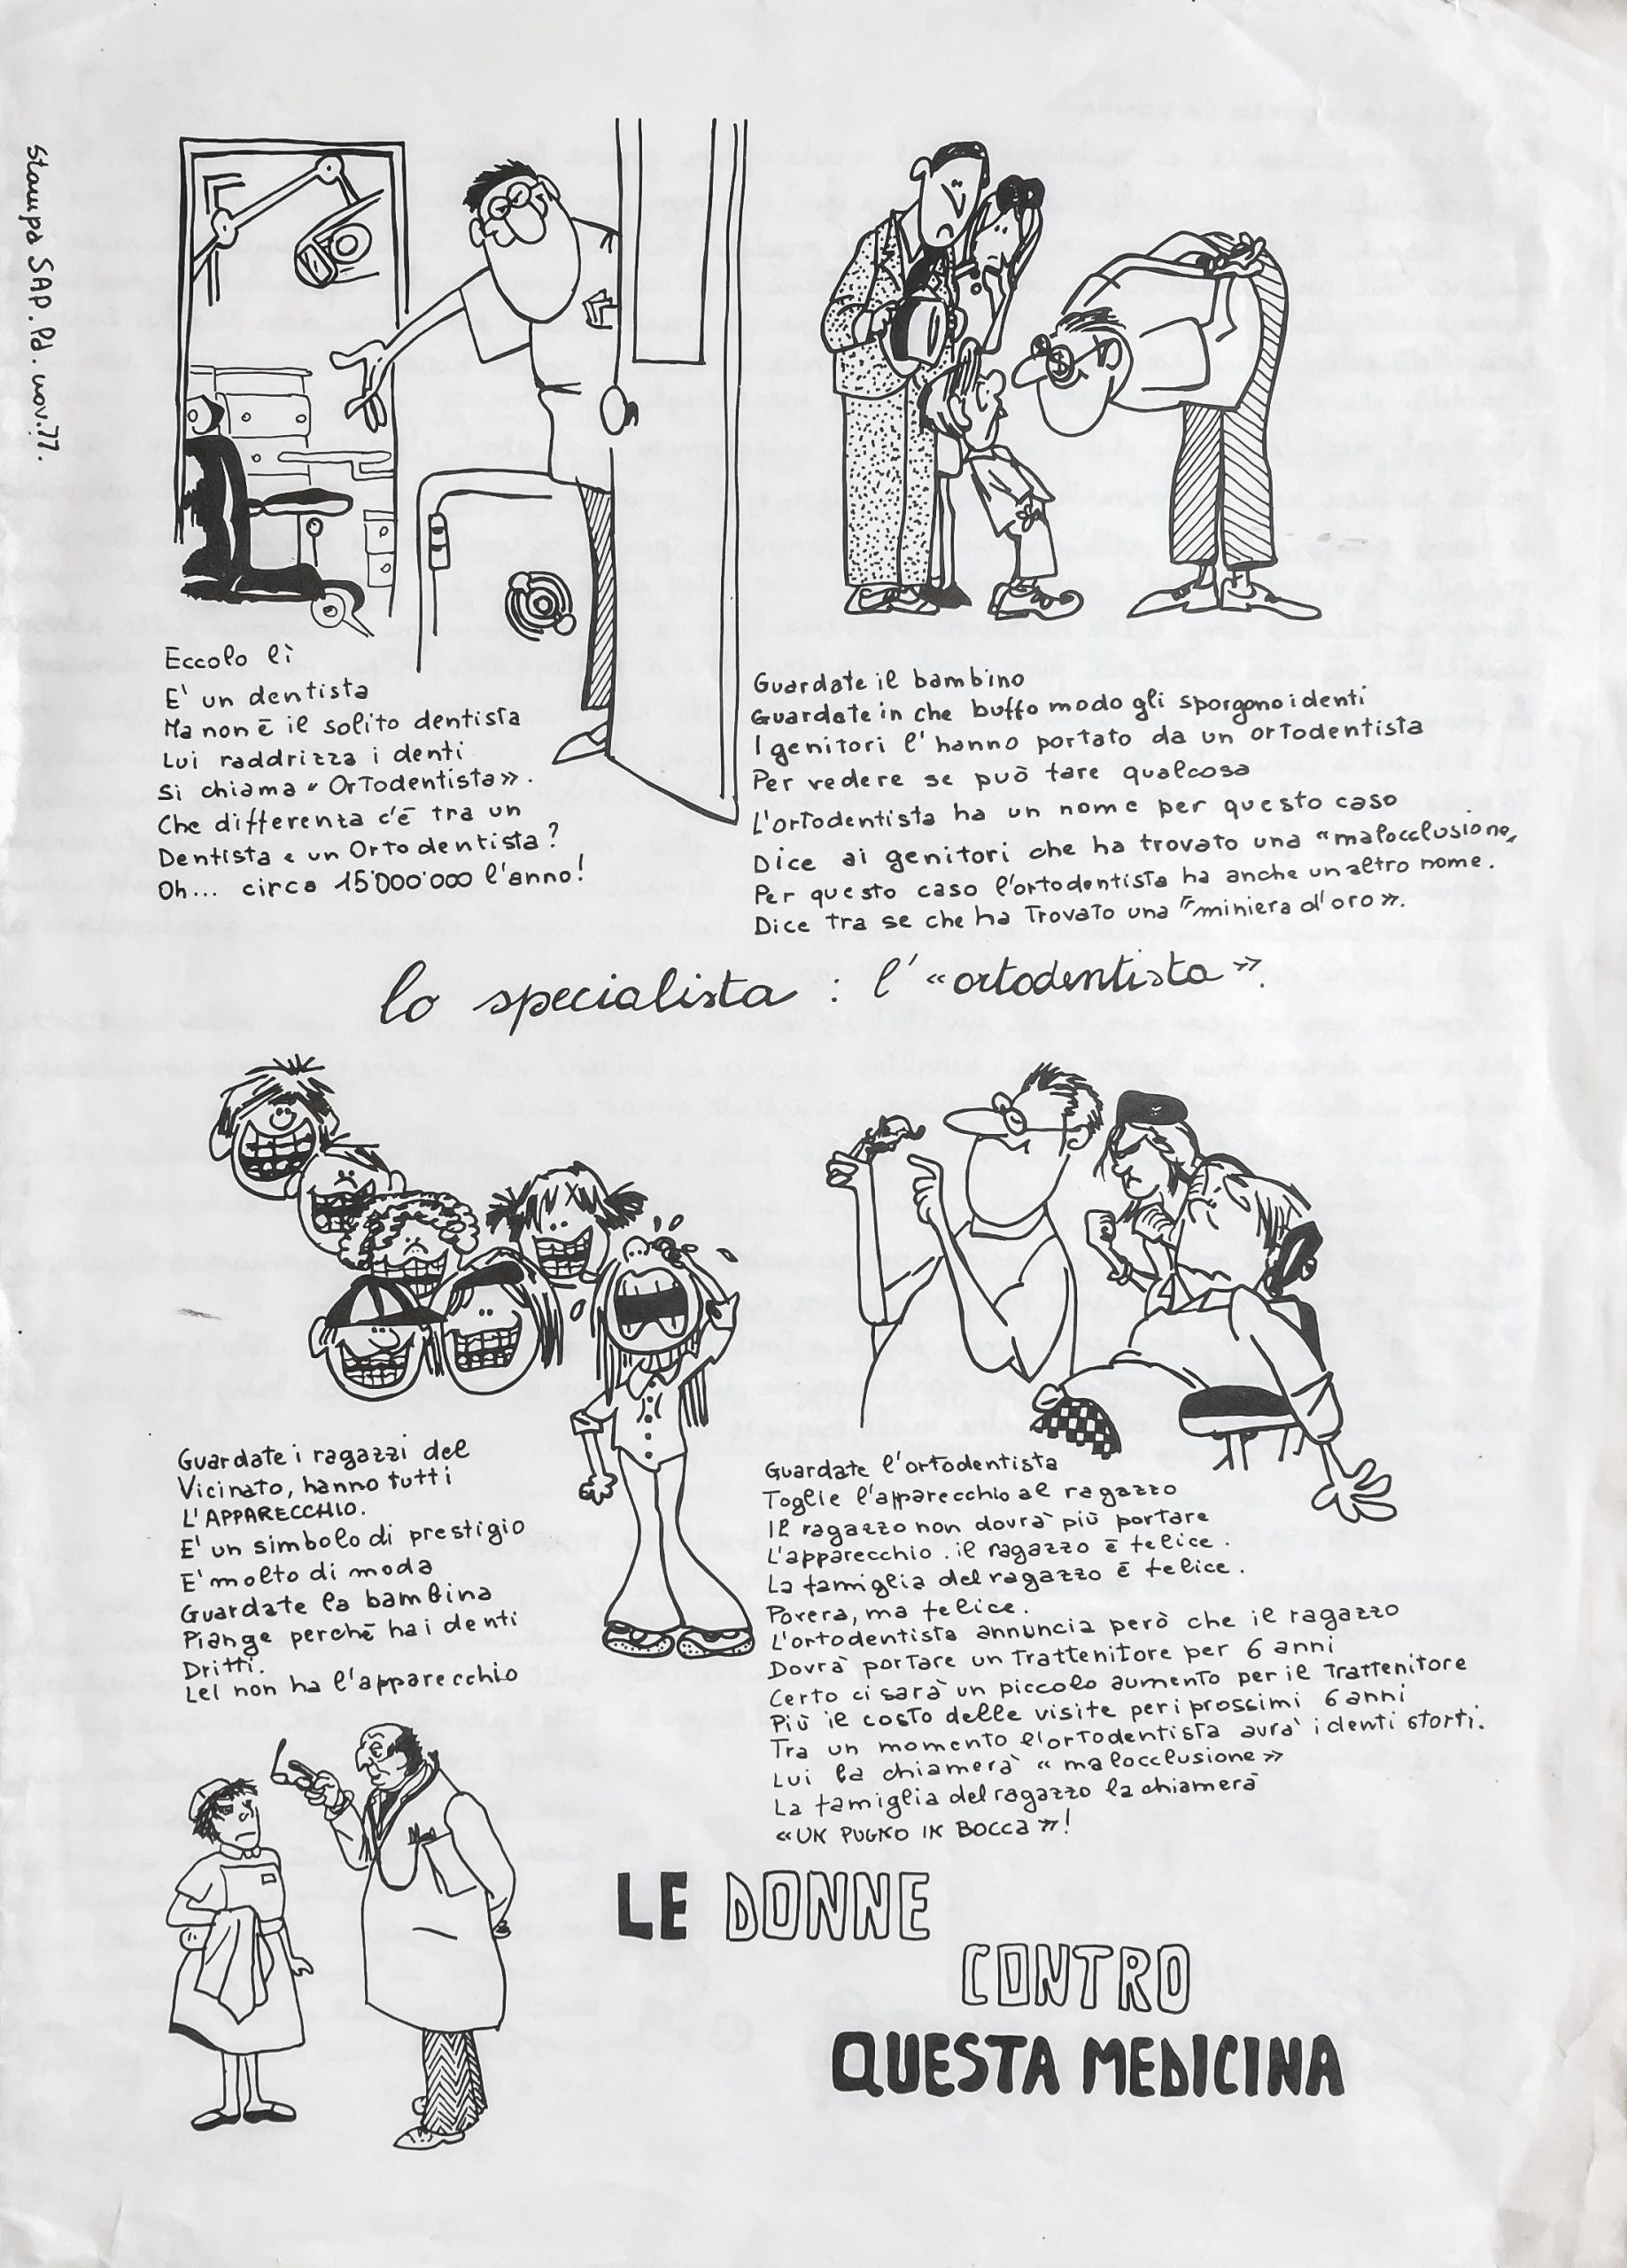 Stampa SAP. Pd. nov. 77.
Eccolo lì
E' un dentista
Ma non è il solito dentista
Lui raddrizza i denti
Si chiama « Ortodentista».
Che differenza c'è tra un
Dentista e un Ortodentista?
Oh... circa 15'000'000 l'anno!
Guardate il bambino
Guardate in che buffo modo gli sporgono i denti
I genitori l'hanno portato da un ortodentista
Per vedere se può fare qualcosa
L'ortodentista ha un nome per questo caso
Dice ai genitori che ha trovato una "malocclusione,,
Per questo caso l'ortodentista ha anche un altro nome.
Dice tra se che ha trovato una "miniera d'oro».
lo specialista : l' «ortodentista».
Guardate i ragazzi del
Vicinato, hanno tutti
L'APPARECCHIO.
E' un simbolo di prestigio
E' molto di moda
Guardate la bambina
Piange perchè ha i denti
Dritti.
LeI non ha l'apparecchio
Guardate l'ortodentista
Toglie l'apparecchio al ragazzo
Il ragazzo non dovrà più portare
L'apparecchio . il ragazzo è felice.
La famiglia del ragazzo è felice.
Povera, ma felice.
L'ortodentista annuncia però che il ragazzo
Dovrà portare un Trattenitore per 6 anni
Certo ci sarà un piccolo aumento per il Trattenitore
Più il costo delle visite per i prossimi 6 anni
Tra un momento l'ortodentista avrà i denti storti.
Lui la chiamerà « malocclusione»
La famiglia del ragazzo la chiamerà
«UN PUGNO IN BOCCA»!
LE DONNE
CONTRO
QUESTA MEDICINA